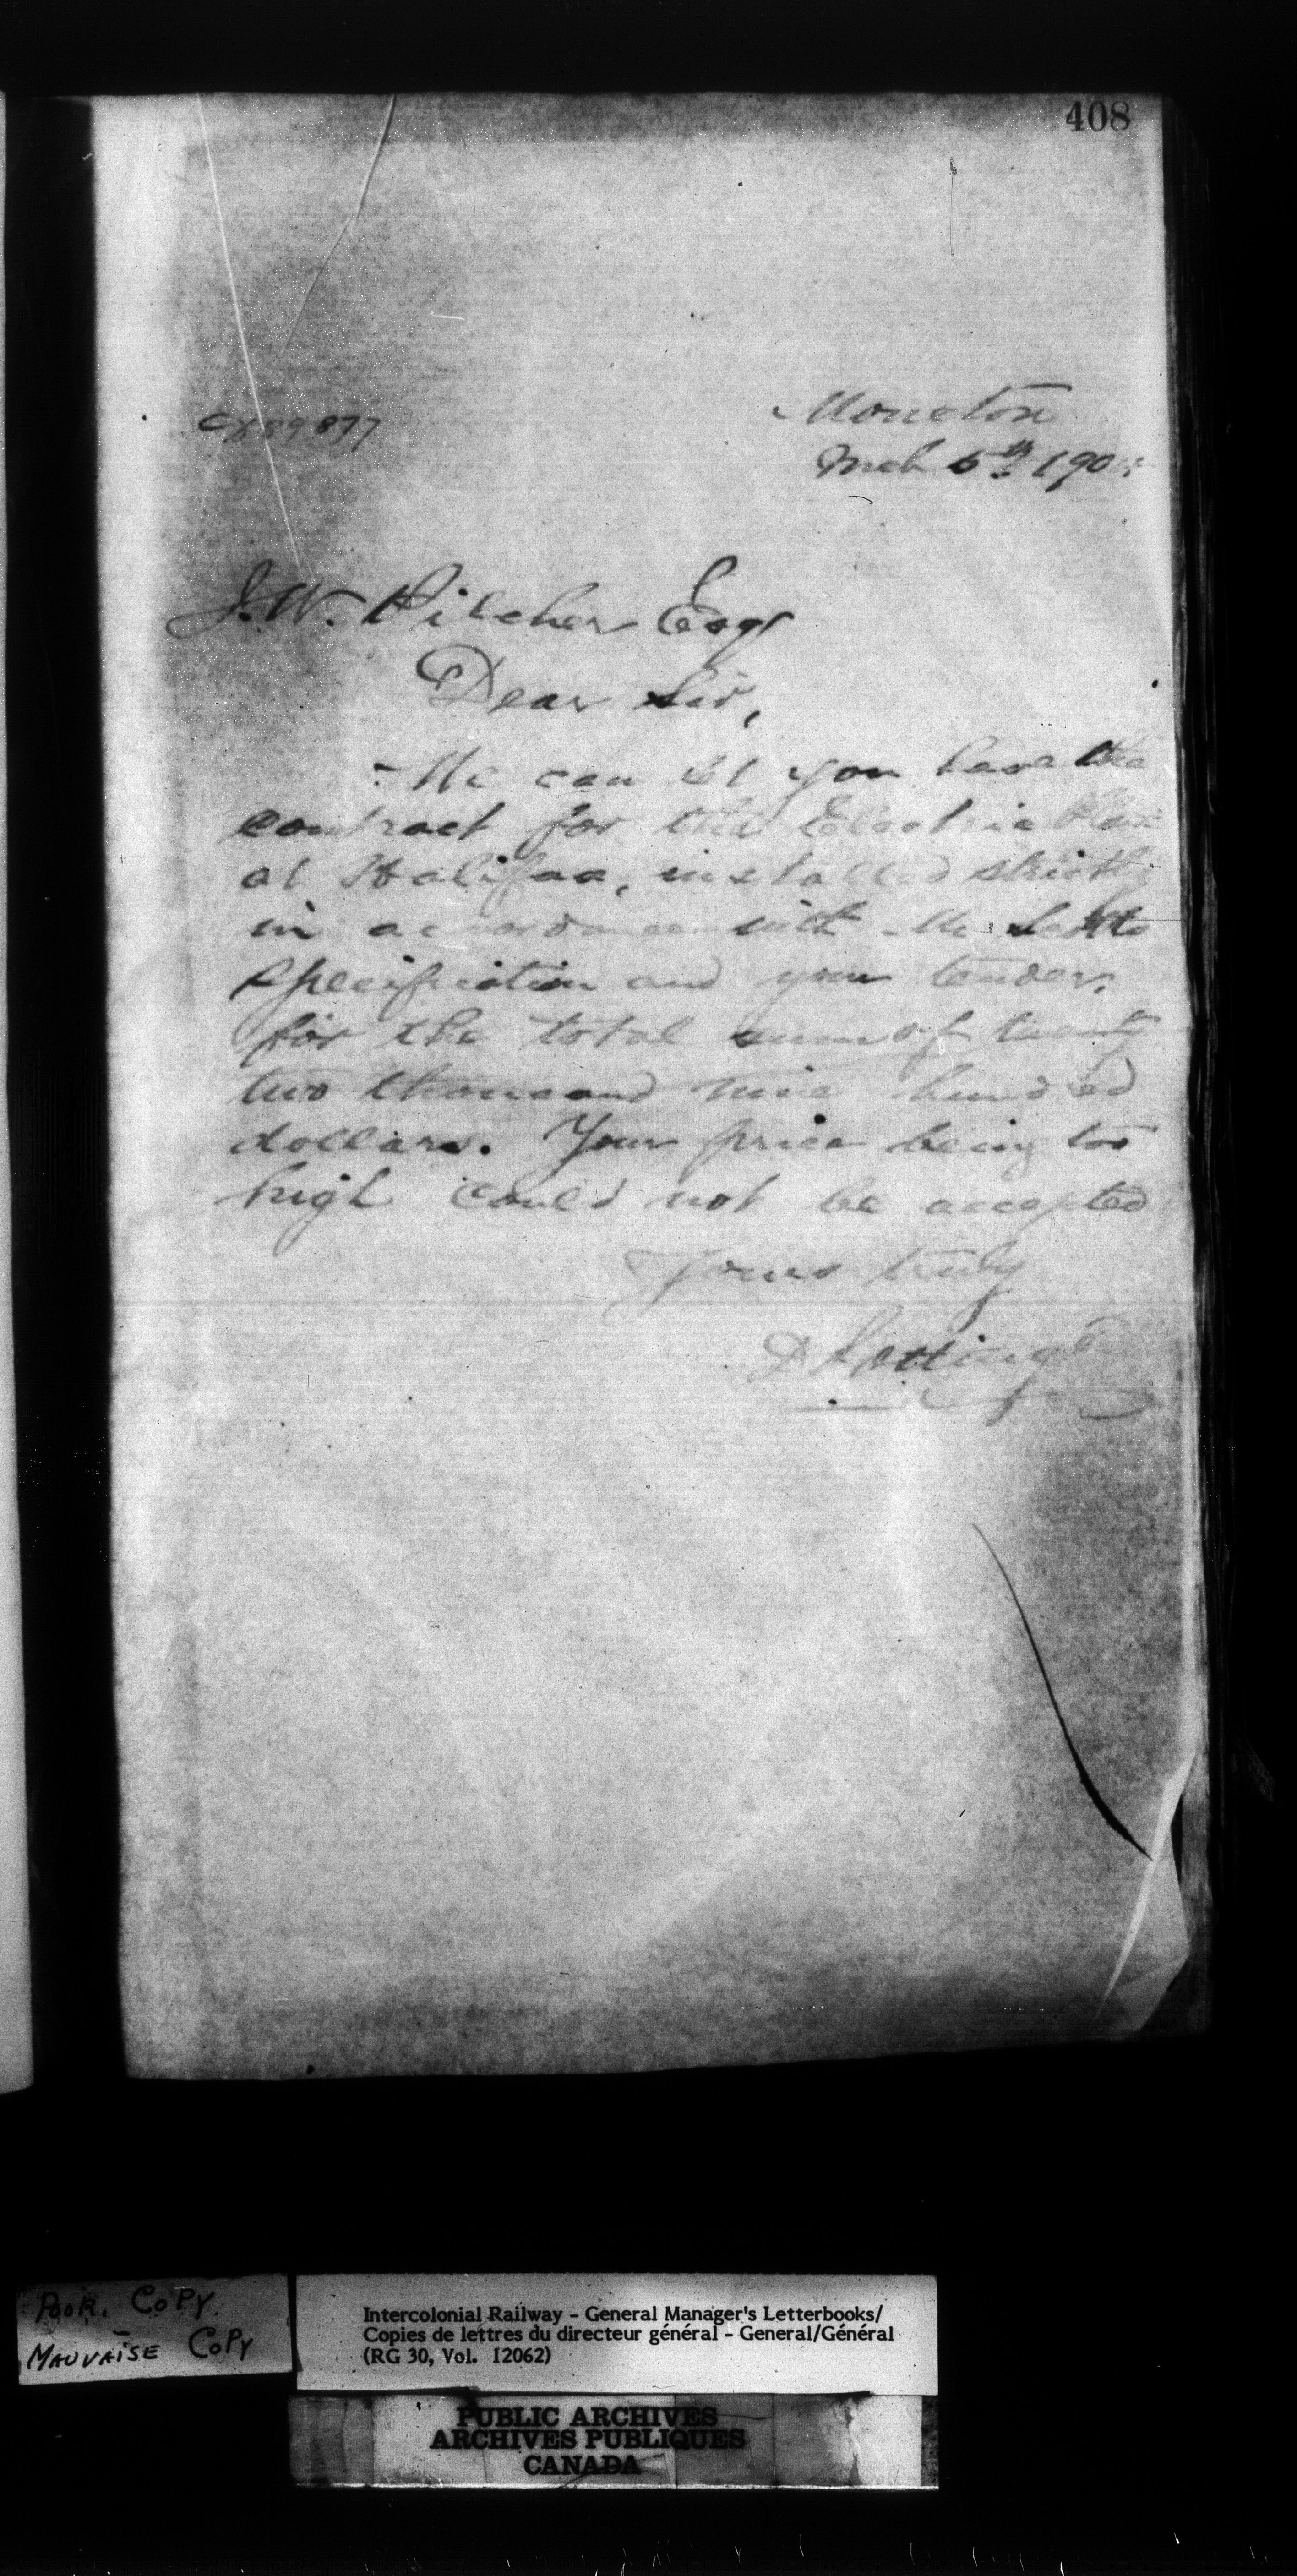 408
Moncton
89877
Mch 5th 190
J. W. Pilcher Esq
Dear Sir,
We can let you have the
contract for the Electric Plant
at Halifax, installed strictly
in accordance with Mr
specification and your tender,
for the total sum of twenty
two thousand nine hundred
dollars. Your price being too
high could not be accepted
Yours truly
D Pottinger
POOR. COPY.
MAUVAISE COPY
Intercolonial Railway - General Manager's Letterbooks/
Copies de lettres du directeur général - General/Général
(RG 30, Vol. 12062)
PUBLIC ARCHIVES
ARCHIVES PUBLIQUES
CANADA